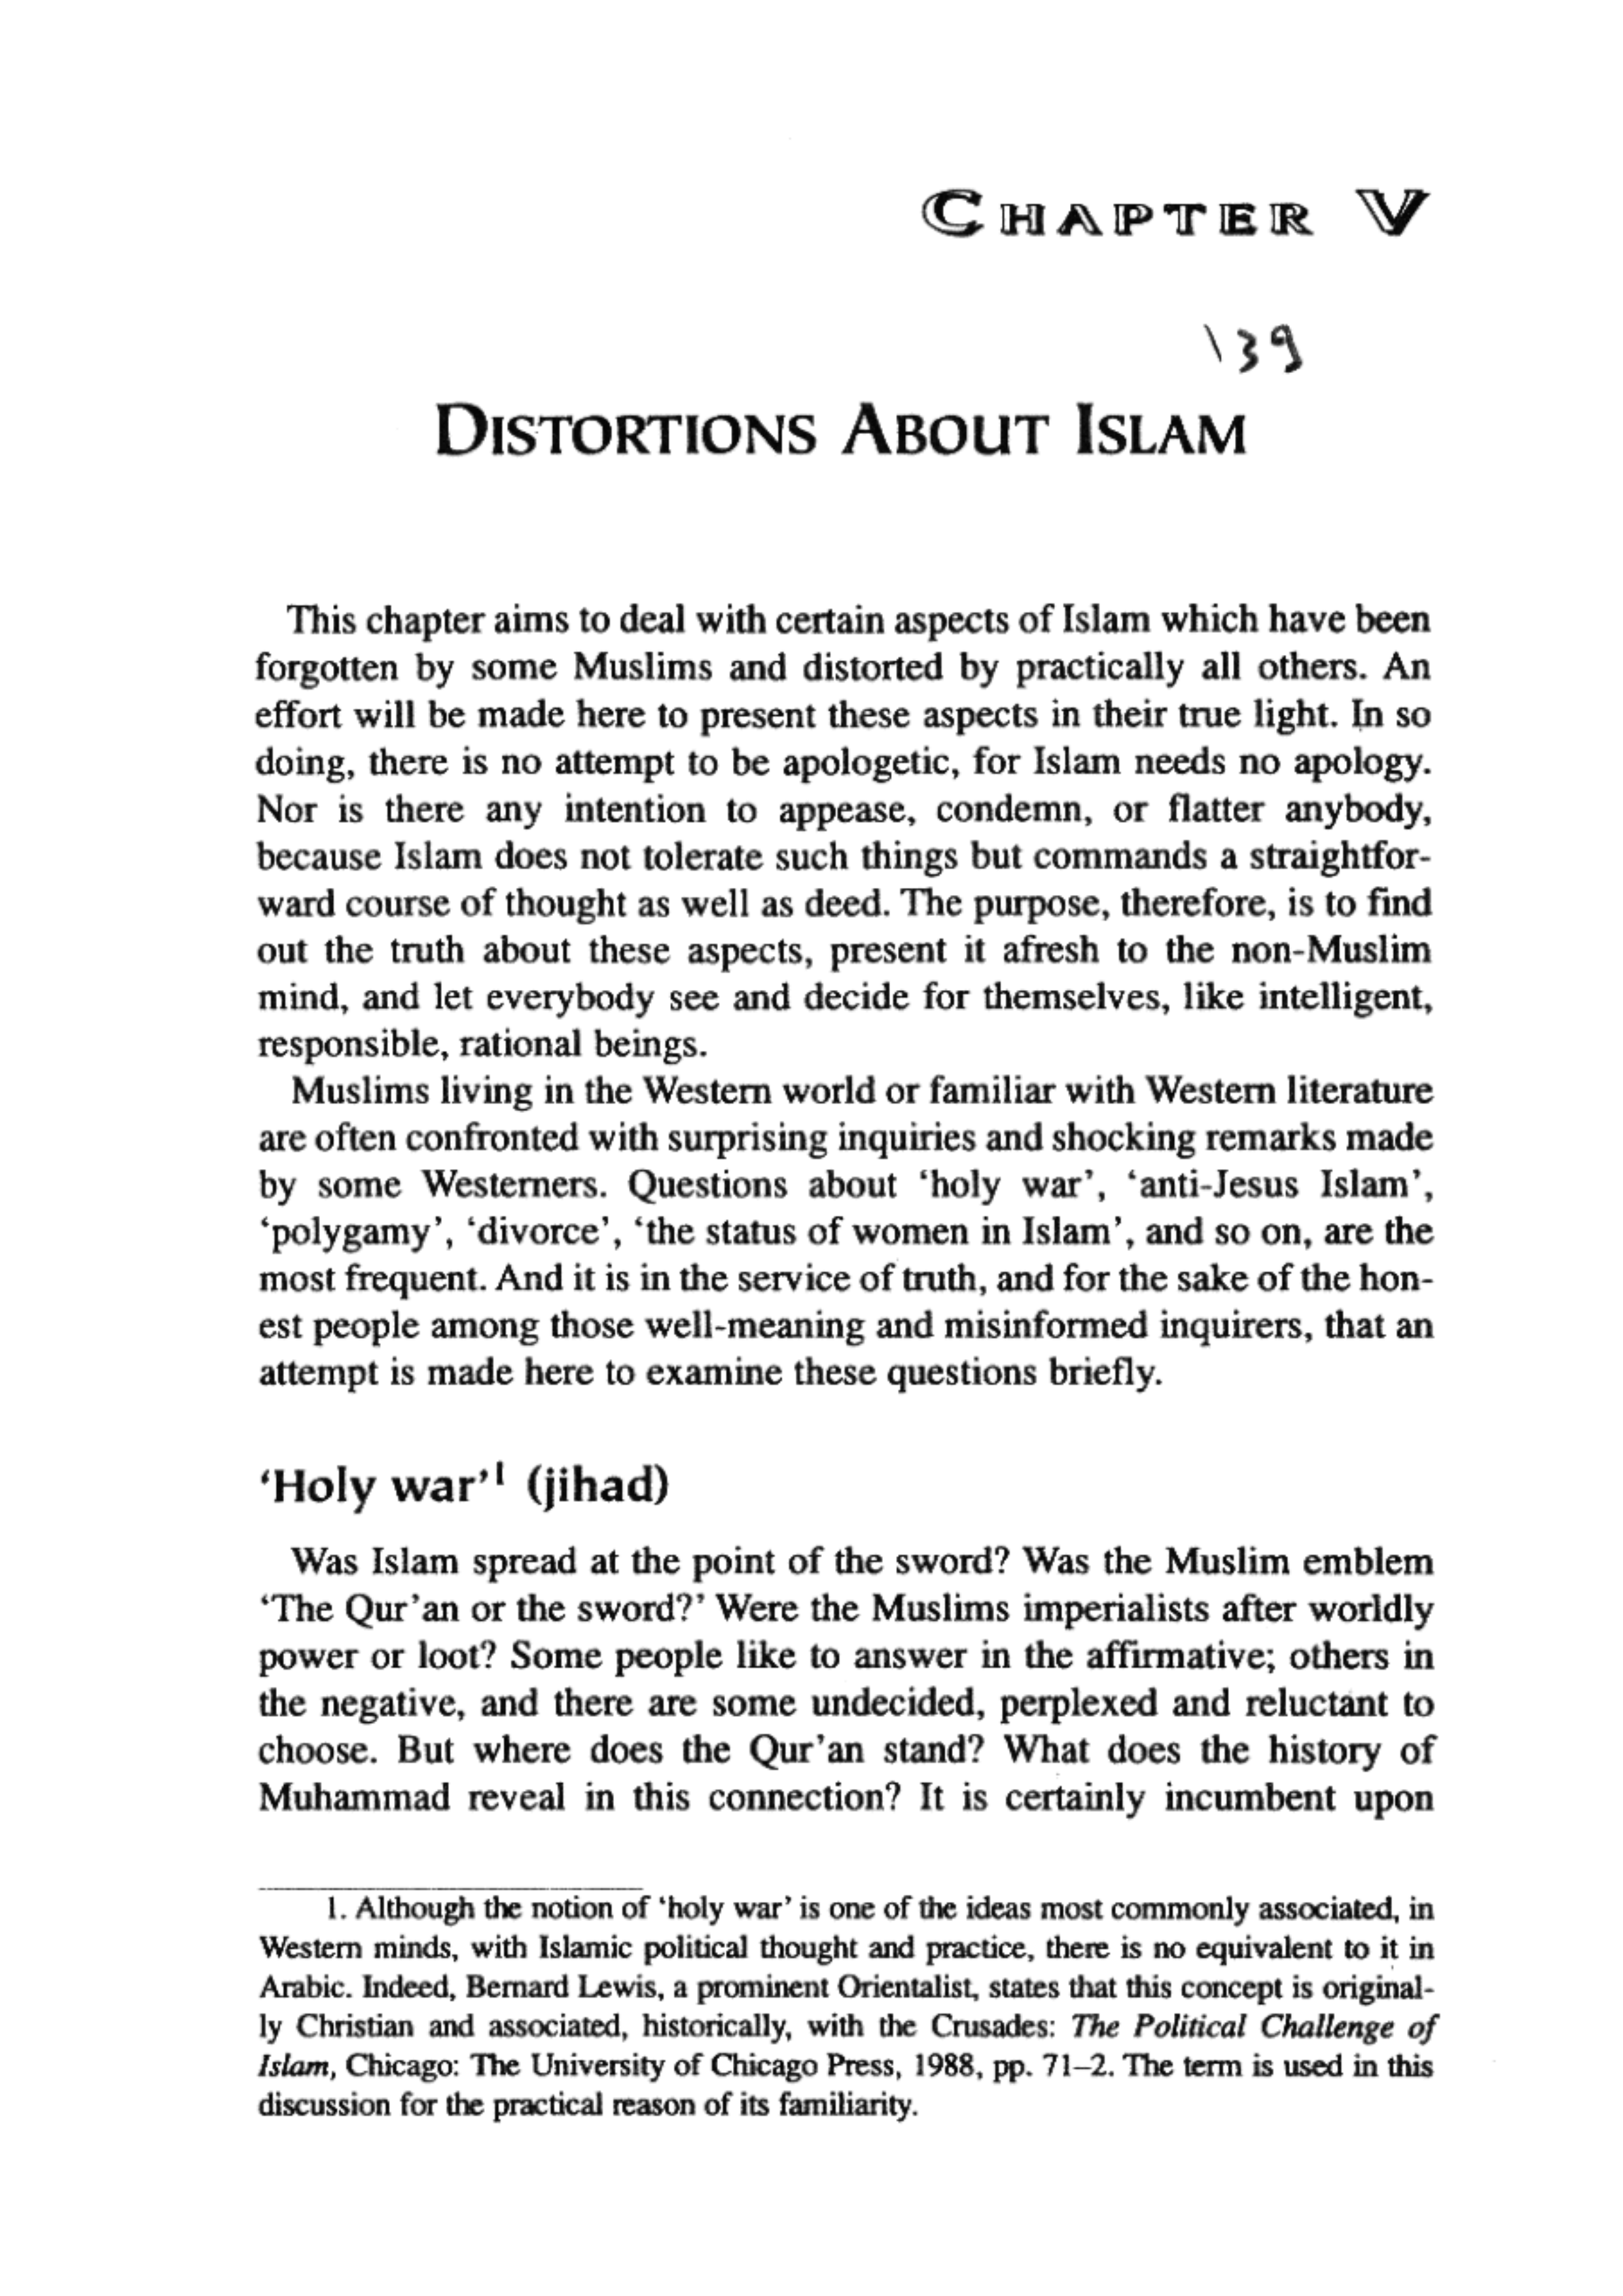 CHAPTER V
139
DISTORTIONS ABOUT ISLAM
This chapter aims to deal with certain aspects of Islam which have been
forgotten by some Muslims and distorted by practically all others. An
effort will be made here to present these aspects in their true light. In so
doing, there is no attempt to be apologetic, for Islam needs no apology.
Nor is there any intention to appease, condemn, or flatter anybody,
because Islam does not tolerate such things but commands a straightfor-
ward course of thought as well as deed. The purpose, therefore, is to find
out the truth about these aspects, present it afresh to the non-Muslim
mind, and let everybody see and decide for themselves, like intelligent,
responsible, rational beings.
Muslims living in the Western world or familiar with Western literature
are often confronted with surprising inquiries and shocking remarks made
by some Westerners. Questions about ‘holy war’, ‘anti-Jesus Islam’,
‘polygamy’, ‘divorce’, ‘the status of women in Islam’, and so on, are the
most frequent. And it is in the service of truth, and for the sake of the hon-
est people among those well-meaning and misinformed inquirers, that an
attempt is made here to examine these questions briefly.
‘Holy war’1 (jihad)
Was Islam spread at the point of the sword? Was the Muslim emblem
‘The Qur’an or the sword?’ Were the Muslims imperialists after worldly
power or loot? Some people like to answer in the affirmative; others in
the negative, and there are some undecided, perplexed and reluctant to
choose. But where does the Qur’an stand? What does the history of
Muhammad reveal in this connection? It is certainly incumbent upon
1. Although the notion of ‘holy war’ is one of the ideas most commonly associated, in
Western minds, with Islamic political thought and practice, there is no equivalent to it in
Arabic. Indeed, Bernard Lewis, a prominent Orientalist, states that this concept is original-
ly Christian and associated, historically, with the Crusades: The Political Challenge of
Islam, Chicago: The University of Chicago Press, 1988, pp. 71–2. The term is used in this
discussion for the practical reason of its familiarity.